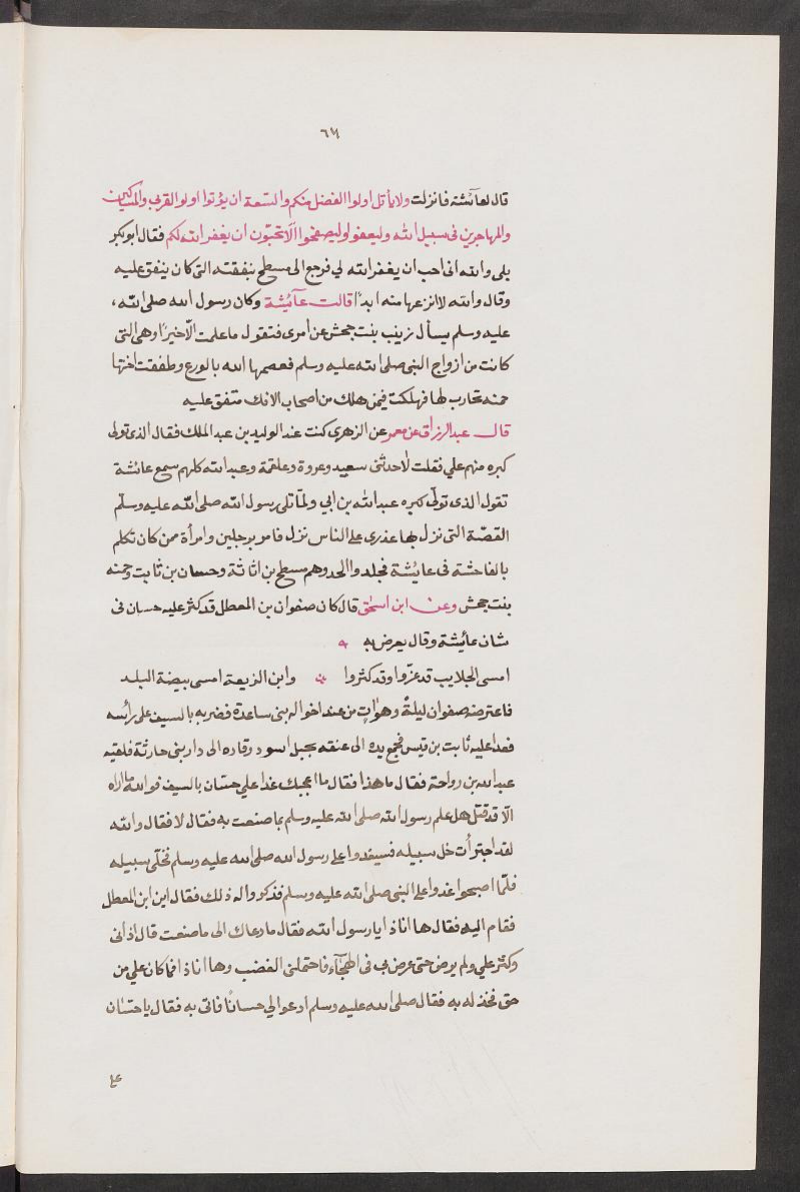 ٦٦
قال لعآئشة فانزلت ولا يأتل اولوا الفضل منكم والسّعة ان يؤتوا اولو القربى والمساكين
والمهاجرين فى سبيل الله وليعفوا وليصفحوا الا تحبّون ان يغفر الله لكم فقال ابوبكر
بلى والله انى احب ان يغفر الله لي فرجع الى مسطح بنفقته التى كان ينفق عليه
وقال والله لا انزعها منه ابدًا قالت عآئيشة وكان رسول الله صلى الله،
عليه وسلم يسأل زينب بنت جحش عن امرى فتقول ما علمت الّا خيرًا وهى التى
كانت من ازواج النبى صلى الله عليه وسلم فعصمها الله بالورع وطفقت اختها
حمنه تحارب لها فهلكت فيمن هلك من اصحاب الافك متفق عليه
قال عبد الرزاق عن معمر عن الزهرى كنت عند الوليد بن عبد الملك فقال الذى تولى
كبره منهم علي فقلت لا حدثنى سعيد وعروة وعلقمة وعبد الله كلهم سمع عائشة
تقول الذى تولّى كبره عبد الله بن ابي ولمّا تلى رسول الله صلى الله عليه وسلّم
القصّة التى نزل بها عذرى على الناس نزل فامر برجلين وامرأة ممن كان تكلم
بالفاحشة فى عايُشة فجلدوا الحد وهم مسطح بن اثاثة وحسان بن ثابت وحمنه
بنت جحش وعن ابن اسحٰق قال كان صفوان بن المعطل قد كثر عليه حسان فى
شان عائيشة وقال يعرض به
امسى الجلابيب قد عزّوا وقد كثروا وابن الزيعة امسى بيضة البلد
فاعترضه صفوان ليلةً وهوات من عند اخواله بنى ساعدة فضربه بالسيف على رائسه
فعدا عليه ثابت بن قيس فجمع يده الى عنقه بحبل اسود وقاده الى دار بنى حارثة فلقيه
عبد الله بن رواحة فقال ما هذا فقال ما اعجبك عدا علي حسّان بالسيف فو الله ما اراه
الّا قد قتل هل علم رسول الله صلى الله عليه وسلم بما صنعت به فقال لا فقال والله
لقد اجترأت خل سبيله فسيغدوا على رسول الله صلى الله عليه وسلم فخلّى سبيله
فلمّا اصبحوا غدوا على النبى صلى الله عليه وسلم فذكروا له ذلك فقال اين ابن المعطل
فقام اليه فقال ها انا ذا يا رسول الله فقال ما دعاك الى ما صنعت قال اذانى
وكثر علي ولم يرض حتى عرض بى فى الهجآء فاحتملنى الغضب وها انا ذا فما كان علي من
حق فخذ له به فقال صلى الله عليه وسلم ادعوا لي حسانًا فاتى به فقال يا حسّان